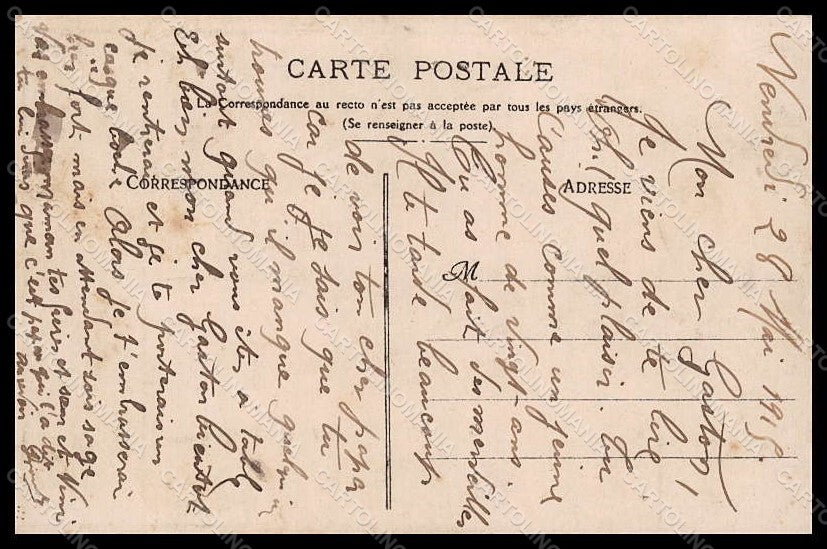 CARTE POSTALE
La Correspondance au recto n'est pas acceptée par tous les pays étrangers.
(Se renseigner à la poste).
CORRESPONDANCE
ADRESSE
M
Vendredi 28 Mai 1915
Mon cher Gaston,
Je viens de te lire
quel plaisir. Tu
causes comme un jeune
homme de vingt ans
Tu as fait des merveilles
Il te tarde beaucoup
de voir ton cher papa
car je sais que tu
trouves qu'il manque quelqu'un
surtout quand vous êtes à table
Eh bien mon cher Gaston bientôt
je rentrerai et je te porterai un
casque boche Alors je t'embrasserai
bien fort mais en attendant sois sage
maman tes frère et sœur et Nini
tu lui diras que c'est papa qui l'a dit
CARTOLINOMANIA